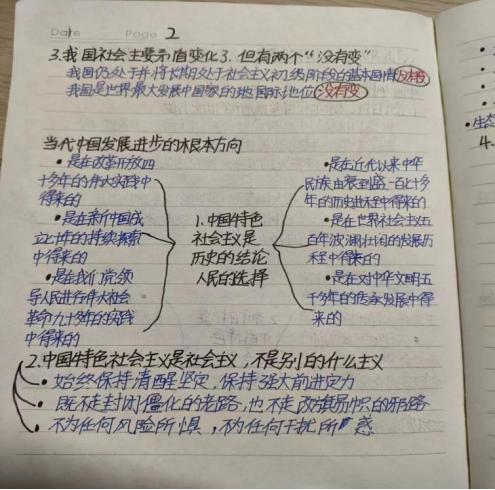 Date
Page 2
3.我国社会主要矛盾变化了.但有两个"没有变"
我国仍处于并将长期处于社会主义初级阶段的基本国情没有变
我国是世界最大发展中国家的地国际地位没有变
当代中国发展进步的根本方向
·是在改革开放四
十多年的伟大实践中
得来的
·是在新中国成
立七十年的持续探索
中得来的
·是在我们党领
导人民进行伟大社会
革命九十多年的实践
中得来的
1.中国特色
社会主义是
历史的结论
人民的选择
·是在近代以来中华
民族由衰到盛一百七十多
年的历史进程中得来的
·是在世界社会主义五
百年波澜壮阔的发展历
程中得来的
·是在对中华文明五
千多年的传承发展中得
来的
2.中国特色社会主义是社会主义,不是别的什么主义
·始终保持清醒坚定,保持强大前进定力
·既不走封闭僵化的老路,也不走改旗易帜的邪路
·不为任何风险所惧,不为任何干扰所惑
·生态
4.